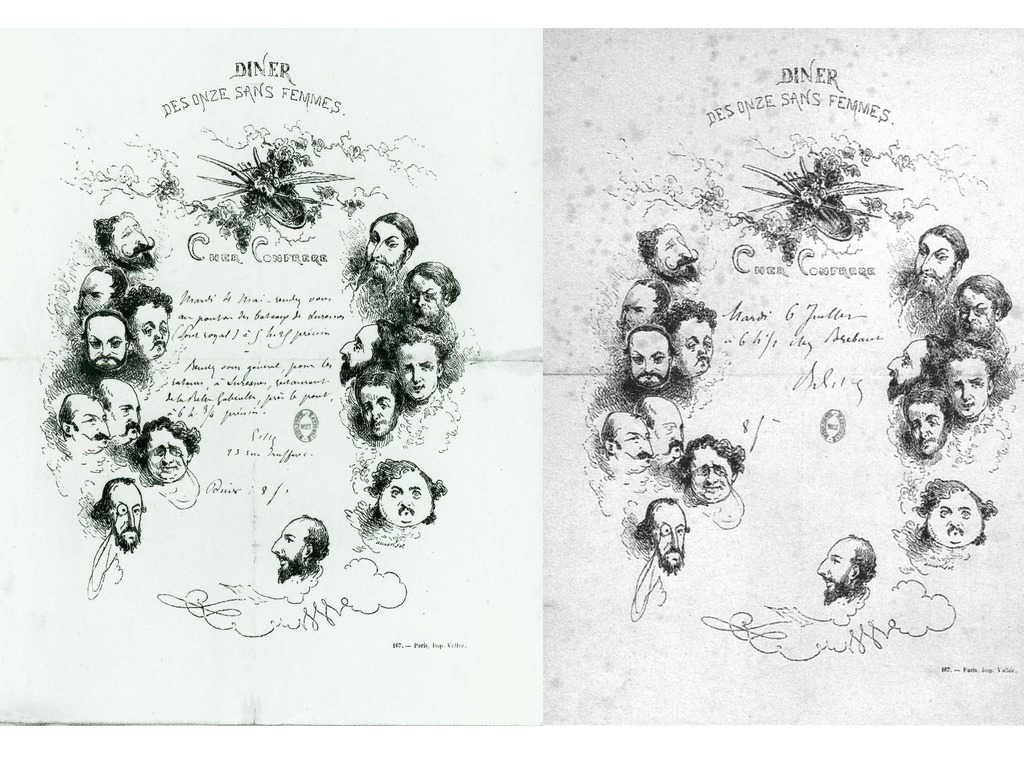 DINER
DES ONZE SANS FEMMES.
CHER CONFRERE
Mardi 4 Mai - rendez vous
au ponton des bateaux de Suresnes
(Pont royal) à 5 h. 25 précises
Rendez vous général, pour les
à Suresnes, restaurant
de la Belle Gabrielle, près le pont,
à 6 h. 3/4 précises.
23 rue
8 f
107. — Paris, Imp. Vallée.
DINER
DES ONZE SANS FEMMES.
CHER CONFRERE
Mardi 6 Juillet
à 6 h 1/2 chez Brebant
8 f
107. — Paris, Imp. Vallée.